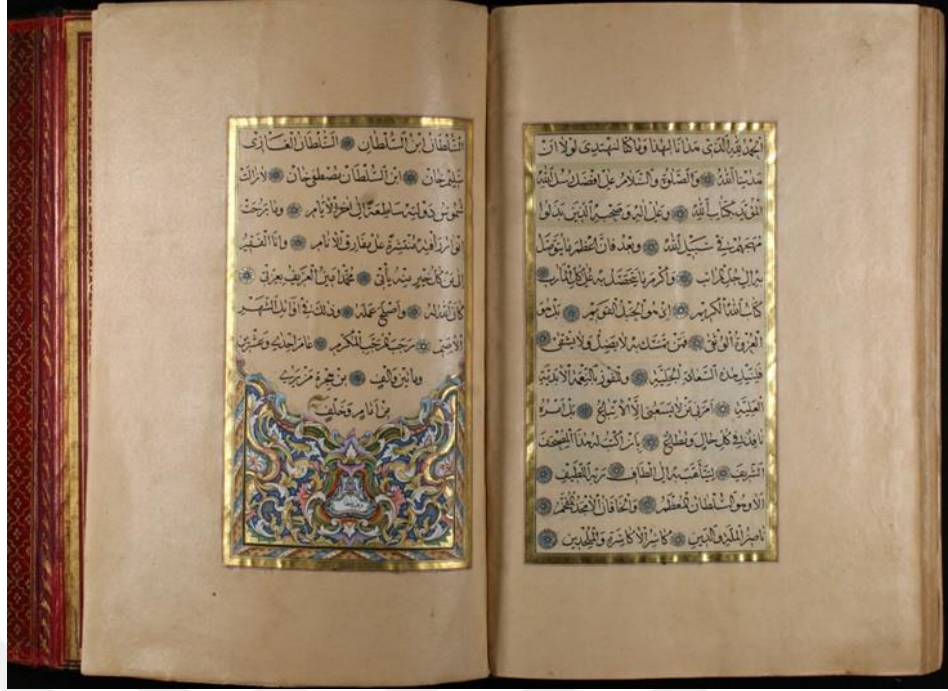 الحمد لله الذي هدانا لهذا وما كنا لنهتدي لولا ان
هدينا الله والصلوة والسلام على افضل رسل الله
المؤيد بكتاب الله وعلى اله وصحبه الذين بذلوا
مهجهم في سبيل الله وبعد فان اعظم ما يتوصل
به الى جل المراتب واكرم ما يتحصل به على كل المآرب
كتاب الله الكريم انه هو الحبل القويم بل هو
العروة الوثقى فمن تمسك به لا يضل ولا يشقى
فلنيل هذه السعادة الجلية والفوز بالنعمة الابدية
العلية امرني من لا يسعني الا الاتباع بل امره
نافذ في كل حال ومطاع بان اكتب له هذا المصحف
الشريف ليتأهب به الى الطاف ربه اللطيف
الا وهو السلطان المعظم والخاقان الامجد المفخم
ناصر الملة والدين كاسر الاكاسرة والملحدين
السلطان ابن السلطان السلطان الغازي
سليم خان ابن السلطان مصطفى خان لا زالت
شموس دولته ساطعة الى اخرة الانام وما برحت
انوار رأفته منتشرة على مفارق الانام وانا الفقير
الى من كل خير منه يأتي محمد امين العريف بعزتي
كان الله له واصلح عمله وذلك في اوائل الشهر
الاصب رجب المكرم عام احدى وعشرين
ومائتين والف من هجرة من يرى
من امام وخلف